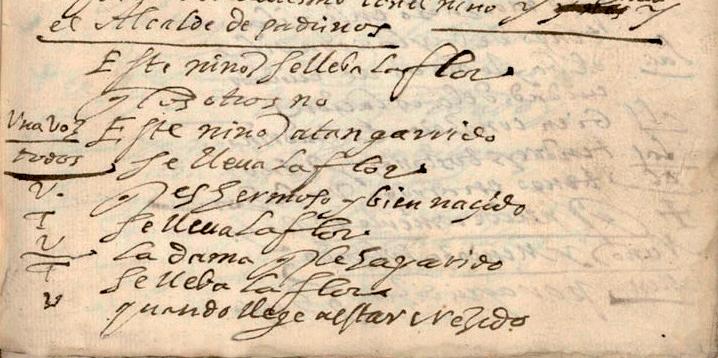 niño y
el Alcalde de padrinos
Este niño se lleba la flor
q los otros no
Una voz Este niño atan garrido
todos se lleua la flor
V. q es hermoso y bien naçido
T se lleua la flor
V la dama q le ha parido
T se lleba la flor
V quando llege a estar creçido